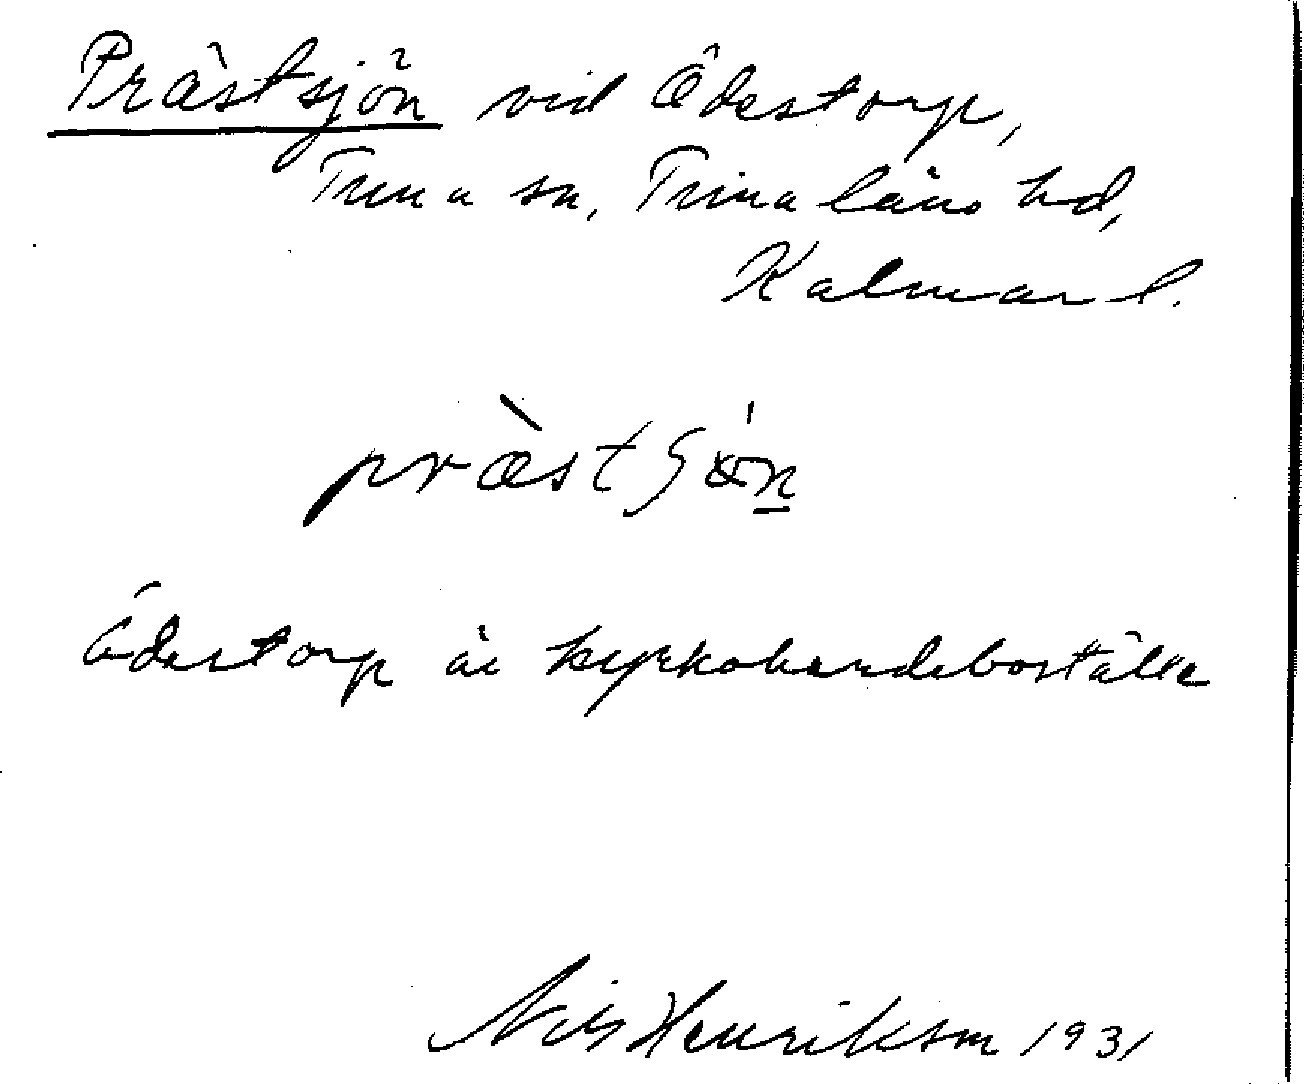 Prästsjön vid Ödestorp,
Tuna sn, Tunaläns hd,
Kalmar l.
Ödestorp är kyrkoherdeboställe
Nils Henrikson 1931